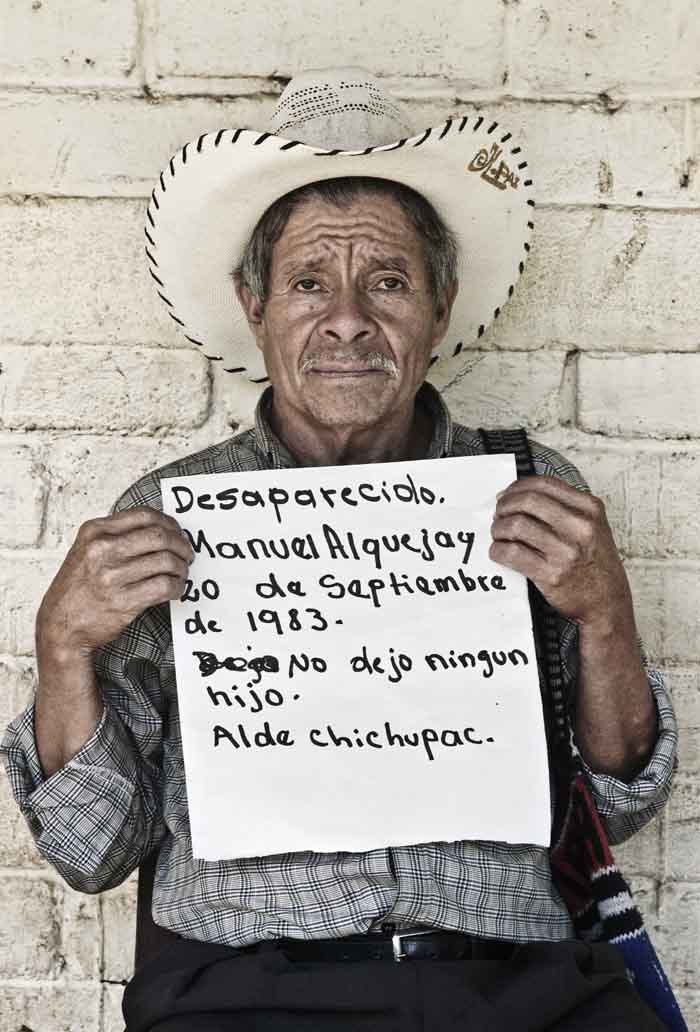 PAZ
Desaparecido.
Manuel Alquejay
20 de Septiembre
de 1983.
No dejo ningun
hijo.
Alde chichupac.